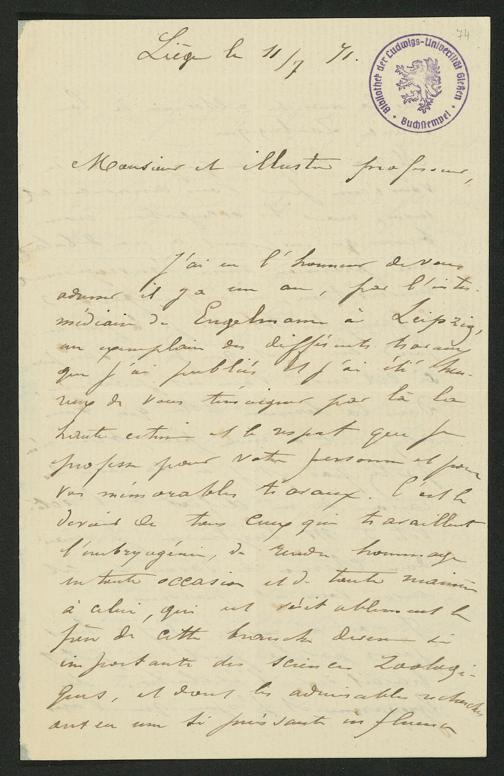 74
Bibliothek der Ludwigs-Universität Gießen
Buchstempel
Liège le 11/7 71.
Monsieur et illustre professeur,
J'ai eu l'honneur de vous
adresser il y a un an, par l'inter-
médiaire de Engelmann à Leipzig,
un exemplaire des différents travaux
que j'ai publiés et j'ai été heu-
reux de vous témoigner par là la
haute estime et le respect que je
professe pour votre personne et pour
vos mémorables travaux. C'est le
devoir de tous ceux qui travaillent
l'embryogénie, de rendre hommage
en toute occasion et de toute manière
à celui, qui est véritablement le
père de cette branche devenue si
importante des sciences zoologi-
ques, et dont les admirables recherches
ont eu une si puissante influence